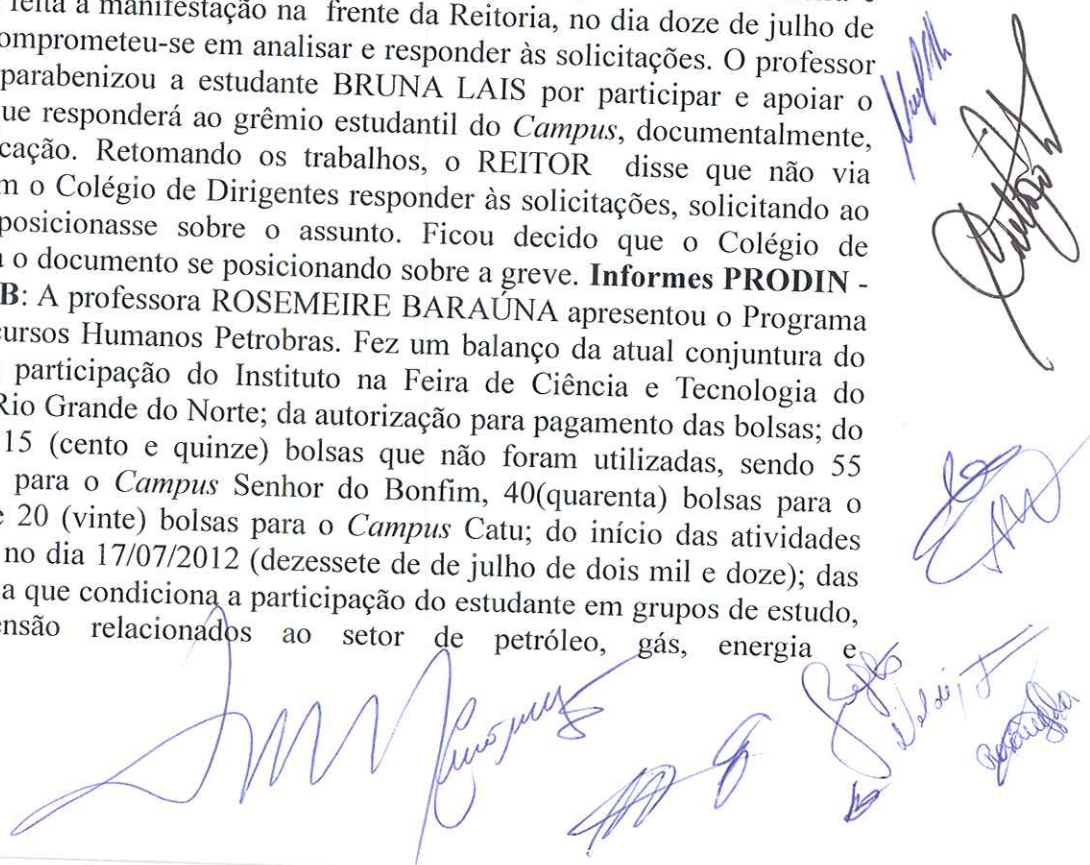 feita a manifestação na frente da Reitoria, no dia doze de julho de
omprometeu-se em analisar e responder às solicitações. O professor
parabenizou a estudante BRUNA LAIS por participar e apoiar o
ue responderá ao grêmio estudantil do Campus, documentalmente,
cação. Retomando os trabalhos, o REITOR disse que não via
m o Colégio de Dirigentes responder às solicitações, solicitando ao
posicionasse sobre o assunto. Ficou decido que o Colégio de
o documento se posicionando sobre a greve. Informes PRODIN -
B: A professora ROSEMEIRE BARAÚNA apresentou o Programa
cursos Humanos Petrobras. Fez um balanço da atual conjuntura do
participação do Instituto na Feira de Ciência e Tecnologia do
Rio Grande do Norte; da autorização para pagamento das bolsas; do
15 (cento e quinze) bolsas que não foram utilizadas, sendo 55
para o Campus Senhor do Bonfim, 40(quarenta) bolsas para o
e 20 (vinte) bolsas para o Campus Catu; do início das atividades
no dia 17/07/2012 (dezessete de de julho de dois mil e doze); das
a que condiciona a participação do estudante em grupos de estudo,
ensão relacionados ao setor de petróleo, gás, energia e